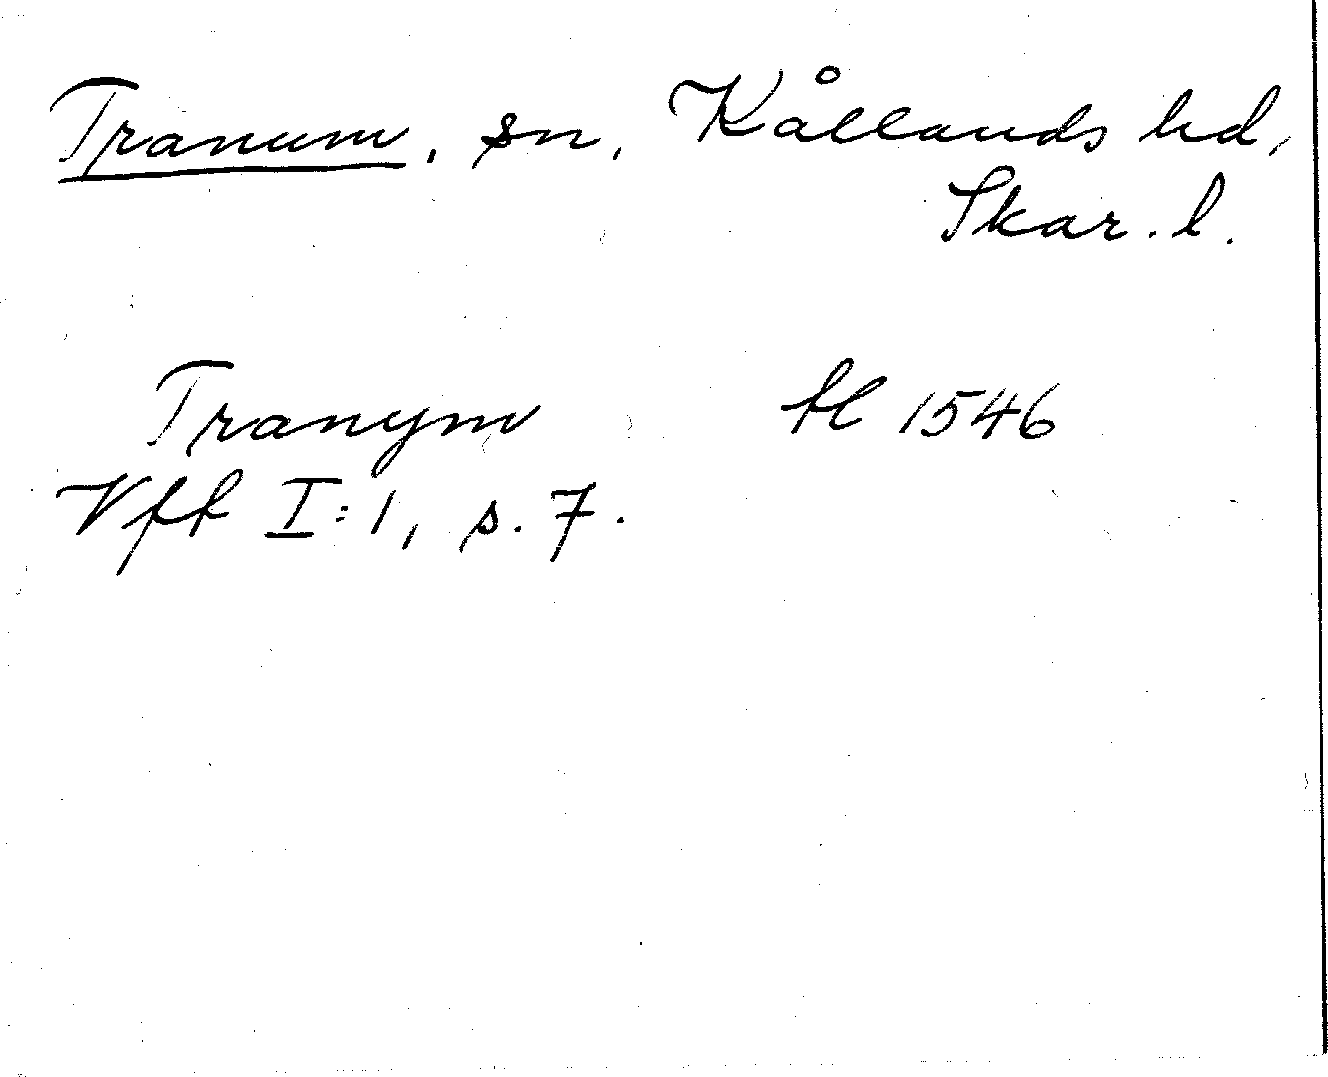 Tranum, sn, Kållands hd,
Skar. l.
Tranym fl 1546
Vff I:1, s. 7.